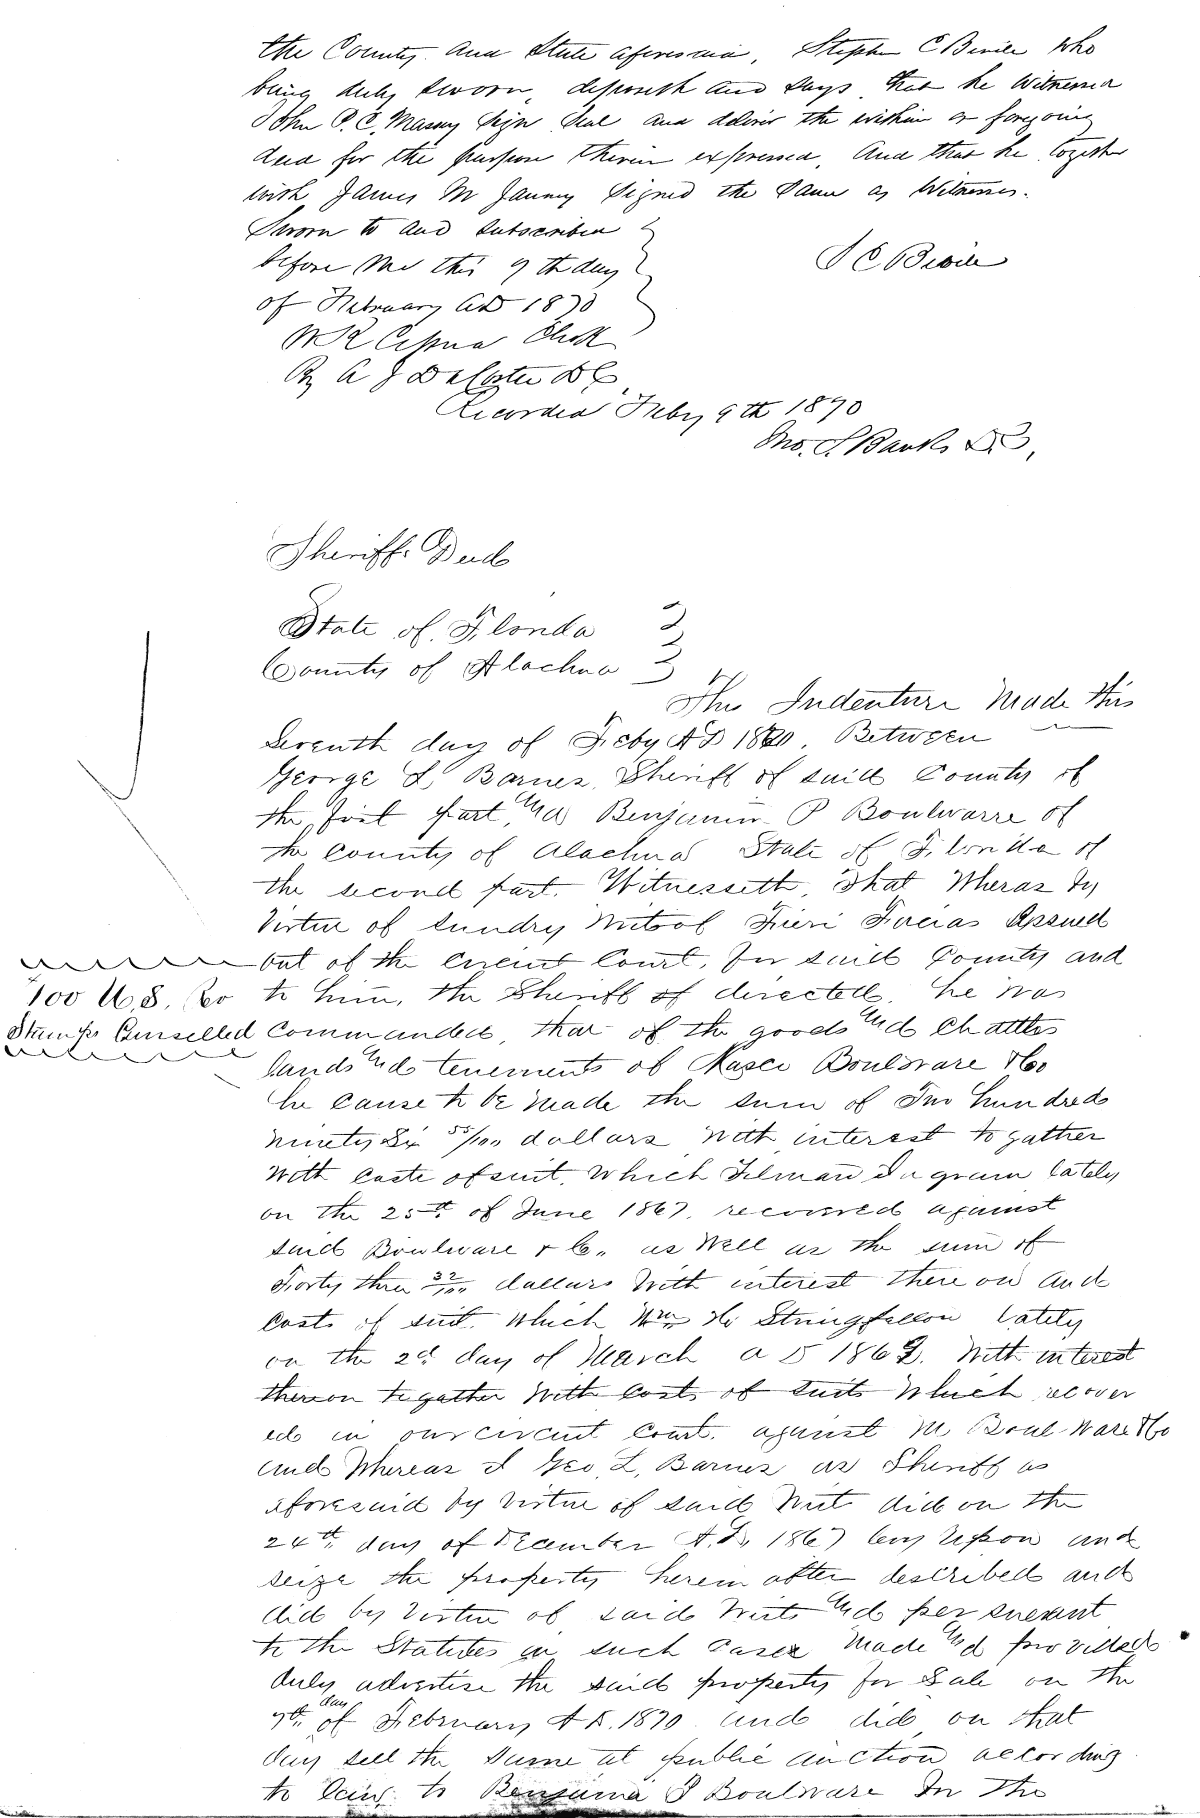 the County and State aforesaid, Stephen C Bevile who
being duly sworn, deposeth and says that he witnessed
John P. C. Massey sign seal and deliver the within or foregoing
deed for the purpose therein expressed, and that he together
with James M Janney signed the same as witnesses.
Sworn to and subscribed
before me this 9th day
of February AD 1870
S C Bevile
W R Cessna Clerk
By A J DaCosta DC
Recorded Feby 9th 1870
Jno. S. Banks D.C.
Sheriffs Deed
State of Florida
County of Alachua
This Indenture Made this
Seventh day of Feby AD 1870. Between
George L Barnes, Sheriff of said County of
the first part, and Benjamin P Boulwarre of
the county of Alachua State of Florida of
the second part. Witnesseth, That Wheras by
Virtue of sundry writs of Fieri Facias Issued
out of the circuit Court, for said County and
to him, the Sheriff of directed, he was
100 U.S. Rev
Stamps Canselled
commanded, that of the goods and chattles
lands and tenements of Boulware & Co
he cause to be made the sum of Two hundred
ninety six 55/100 dollars with interest to gather
with costs of suit, which Tilman Ingram lately
on the 25th of June 1867, recovered against
said Boulware & Co. as well as the sum of
Forty three 32/100 dollars with interest there on and
costs of suit which Wm H. Stringfellow lately
on the 2d day of March A D 1867. With interest
thereon together with costs of suits which recover
ed in our circuit Court, against M Boulware & Co
and Whereas I Geo. L. Barnes as Sheriff as
aforesaid by virtue of said writ did on the
24th day of December A.D. 1867 levy upon and
seize the property herein after described and
did by virtue of said writs and persuant
to the Statutes in such cases made and provided
duly advertise the said property for sale on the
7th day of February A D. 1870 and did on that
day sell the same at public auction according
to law. to Benjamin P Boulware In the